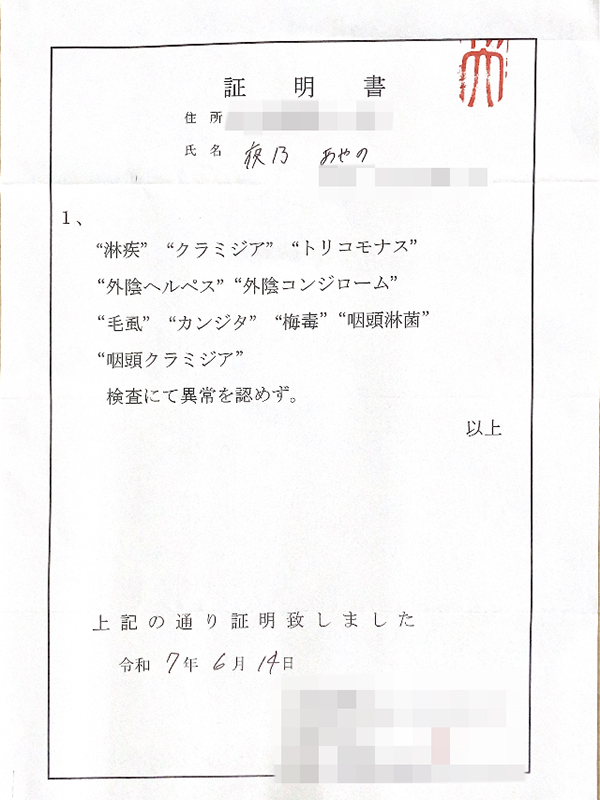 証明書
住所
氏名 夜乃 あやの
1、
“淋疾” “クラミジア” “トリコモナス”
“外陰ヘルペス” “外陰コンジローム”
“毛虱” “カンジタ” “梅毒” “咽頭淋菌”
“咽頭クラミジア”
検査にて異常を認めず。
以上
上記の通り証明致しました
令和 7年 6月 14日